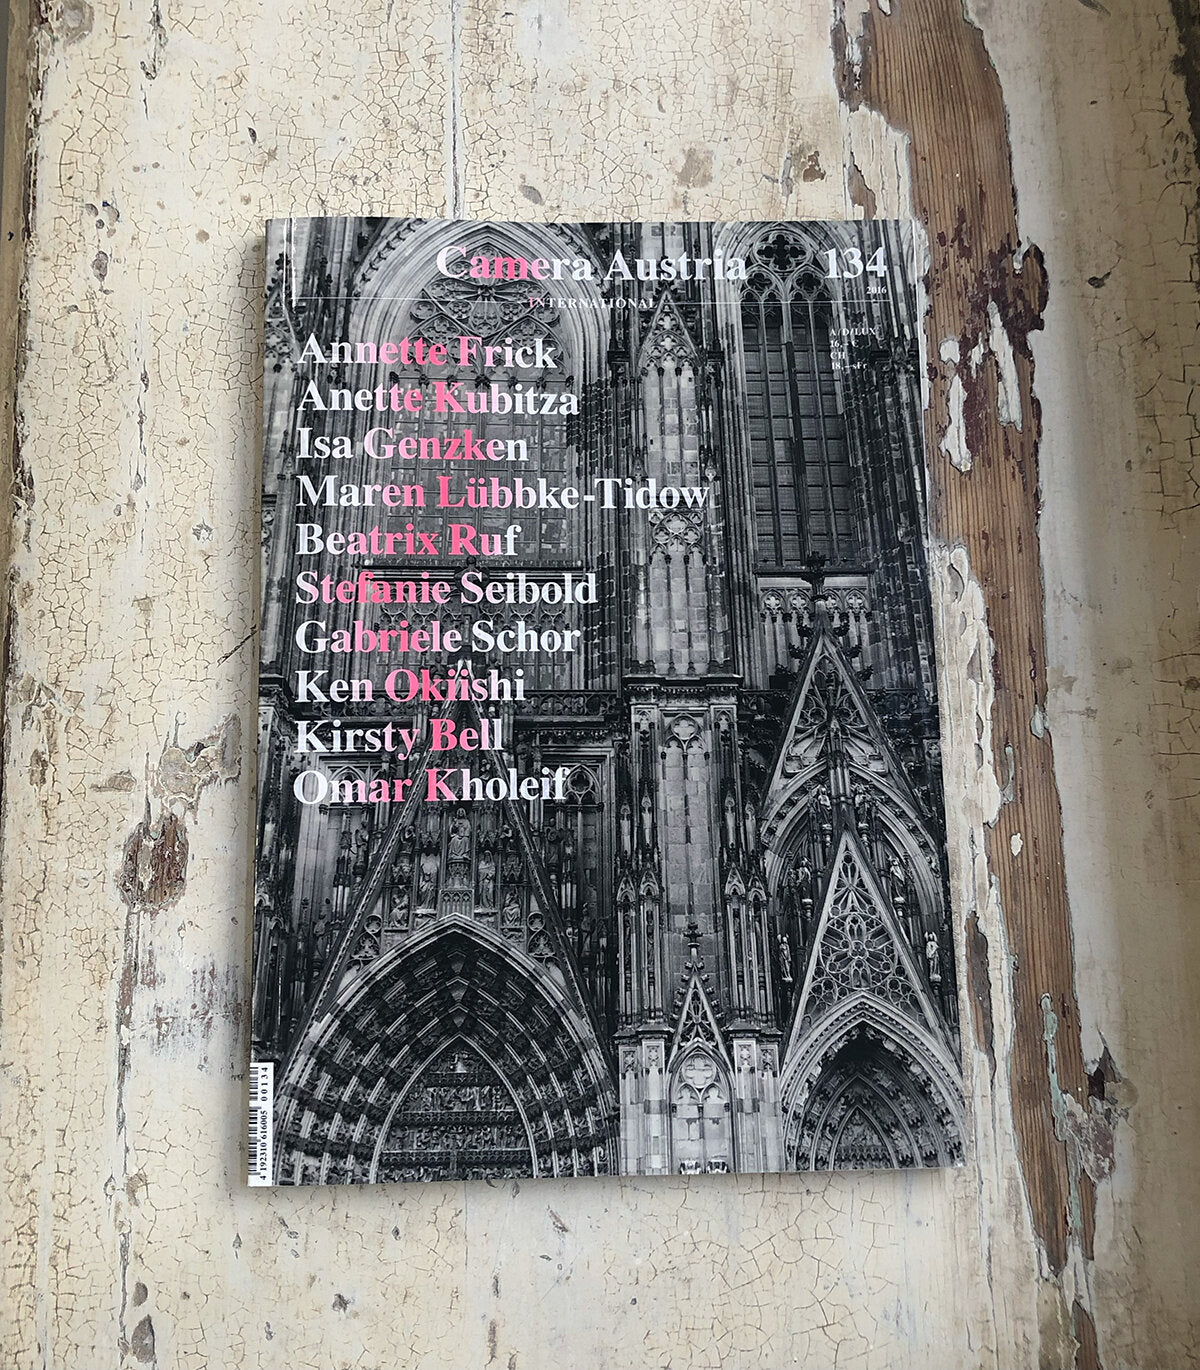 Camera Austria 134
2016
INTERNATIONAL
A/D/LUX
CH
Annette Frick
Anette Kubitza
Isa Genzken
Maren Lübbke-Tidow
Beatrix Ruf
Stefanie Seibold
Gabriele Schor
Ken Okiishi
Kirsty Bell
Omar Kholeif
4 192310 616005 00134